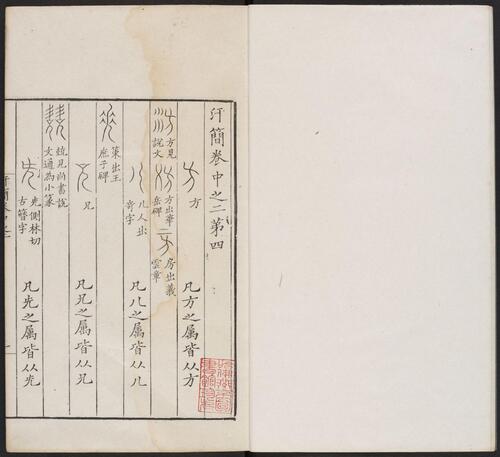 汗簡卷中之二第四
方 凡方之属皆从方
方見說文 方出華岳碑 房出義雲章
儿人出奇字 凡儿之属皆从儿
策出王庶子碑
兄 凡兄之属皆从兄
見尚書說文通為小篆
先側林切古簪字 凡先之属皆从先